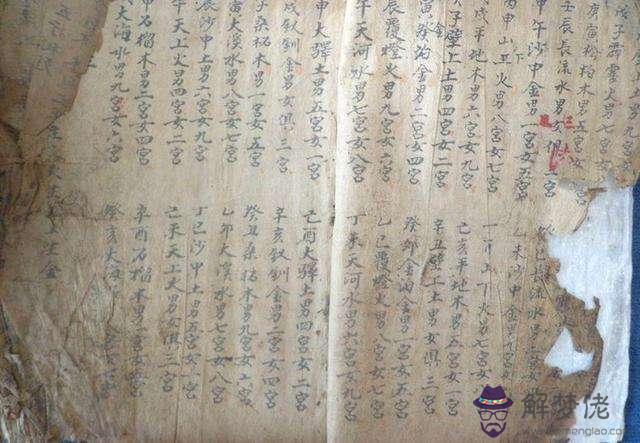 戊子霹靂火男九宮女
庚寅松柏木男七宮女
壬辰長流水男女俱三宮
甲午沙中金男一宮女五宮
丙申山下火男八宮女七宮
戌平地木男六宮女九宮
子壁上土男四宮女二宮
寅金泊金男二宮女四宮
辰覆燈火男九宮女六宮
午天河水男七宮女八宮
申大驛土男五宮女一宮
戌釵釧金男女俱三宮
子桑柘木男一宮女五宮
寅大溪水男八宮女七宮
辰沙中土男六宮女九宮
午天上火男四宮女二宮
申石榴木男二宮女四宮
大海水男九宮女六宮
巳長流水男
乙未沙中金男九宮
火男七宮女
己亥平地木男五宮女一宮
辛丑壁上土男女俱三宮
癸卯金泊金男一宮女五宮
乙巳覆燈火男八宮女七宮
丁未天河水男六宮女九宮
己酉大驛土男四宮女二宮
辛亥釵釧金男二宮女四宮
癸丑桑柘木男九宮女六宮
乙卯大溪水男七宮女八宮
丁巳沙中土男五宮女一宮
己未天上火男女俱三宮
辛酉石榴木男一宮女五宮
癸亥大海
解梦佬
www.jiemenglao.com